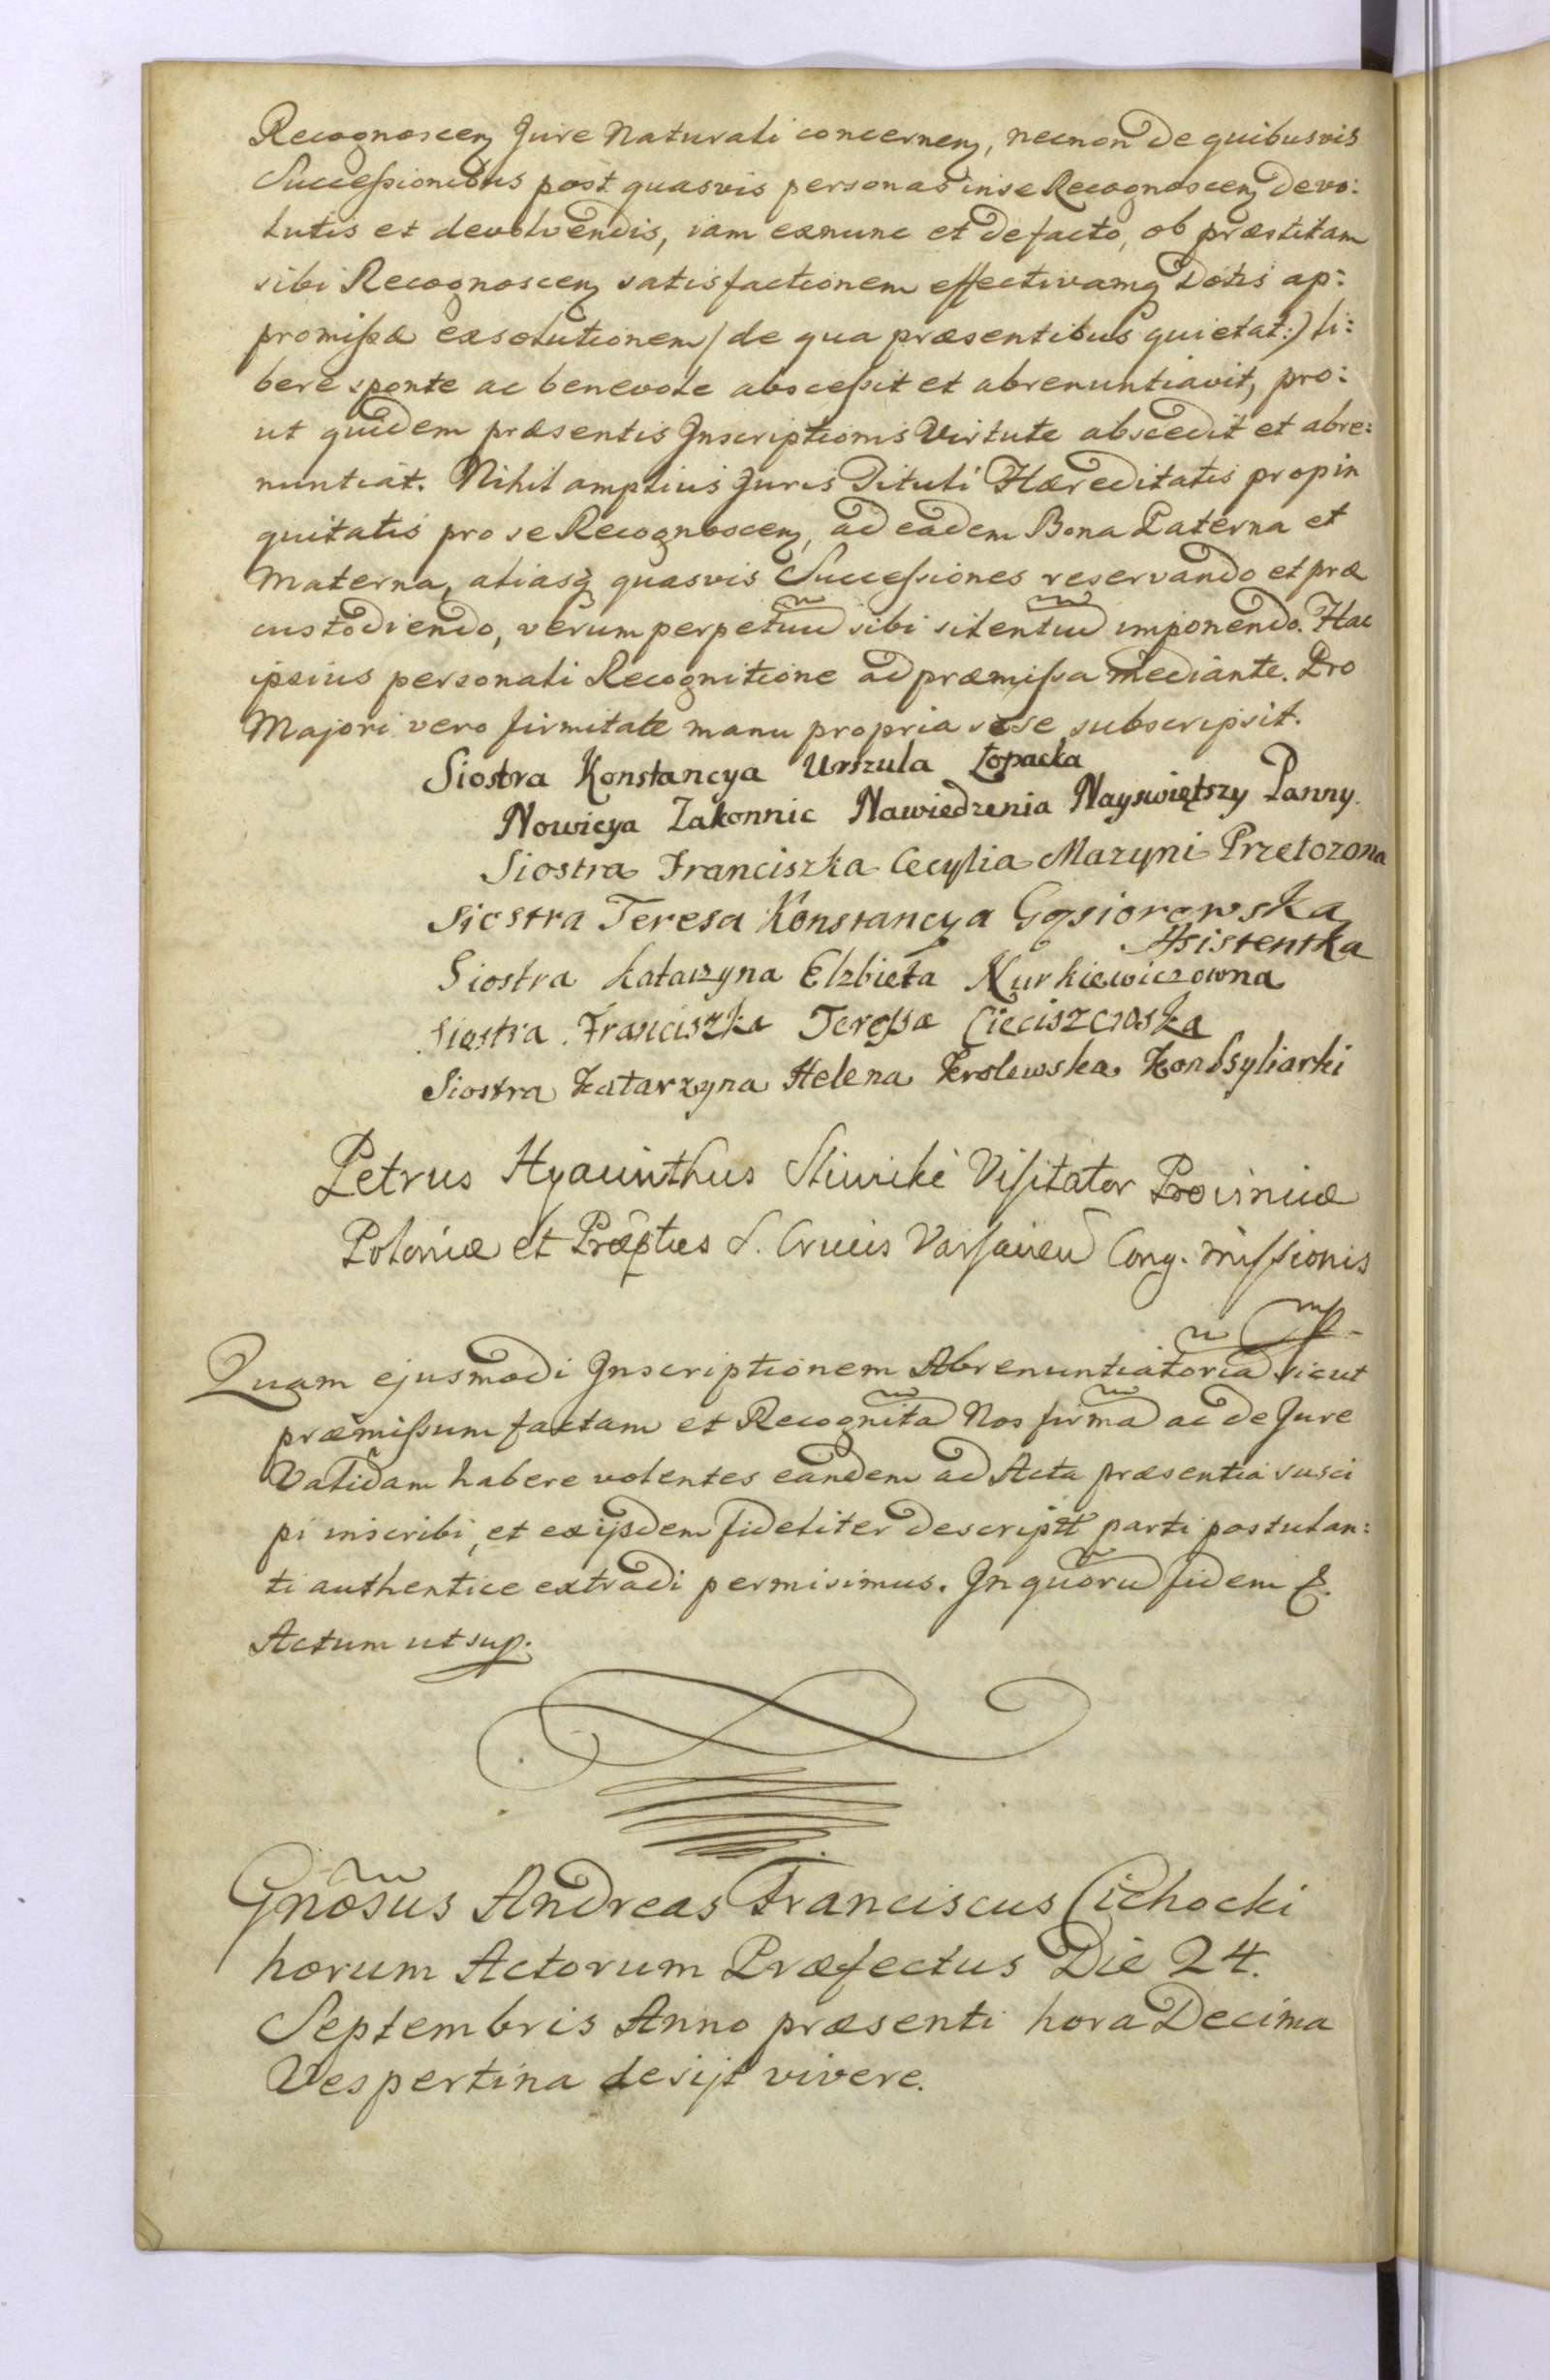 Recognoscen Jure Naturali concernen, necnon de quibusvis
Successionibus post quasvis personas in se Recognoscen devo:
lutis et devolvendis, iam exnunc et de facto, ob præstitam
sibi Recognoscen satisfactionem effectivamq Dotis ap:
promissæ exsolutionem (de qua præsentibus quietat:) li:
bere sponte ac benevole abscessit et abrenuntiavit, pro:
ut quidem præsentis Inscriptionis Virtute abscedit et abre:
nuntiat. Nihil amplius Juris Tituli Hæreditatis propin
quitatis pro se Recognoscen, ad eadem Bona Paterna et
Materna, aliasq quasvis Successiones reservando et præ
custodiendo, verum perpetuu sibi silentiu imponendo. Hac
ipsius personali Recognitione ad præmissa mediante. Pro
Majori vero firmitate manu propria sese subscripsit.
Siostra Konstancya Urszula Łopacka
Nowicya Zakonnic Nawiedzenia Nayswiętszy Panny.
Siostra Franciszka Cecylia Mazyni Przełozona
Siostra Teresa Konstancya Gąsiorowska
Asistentka
Siostra Katarzyna Elzbieta Nurkiewiczowna
Siostra Franciszka Teressa Cieciszewska
Siostra Katarzyna Helena Krolewska Konssyliarki
Petrus Hyacinthus Sliwicki Visitator Provinciæ
Poloniæ et Præptus S. Crucis Varsavien Cong. Missionis
mp
Quam ejusmodi Inscriptionem Abrenuntiatoria sicut
præmissum factam et Recognita Nos firma ac de Jure
Validam habere volentes eandem ad Acta præsentia susci
pi inscribi, et ex ijsdem fideliter descript parti postulan:
ti authentice extradi permisimus. In quoru fidem &.
Actum ut sup.
Gnosus Andreas Franciscus Cichocki
horum Actorum Præfectus Die 24.
Septembris Anno præsenti hora Decima
Vespertina desijt vivere.